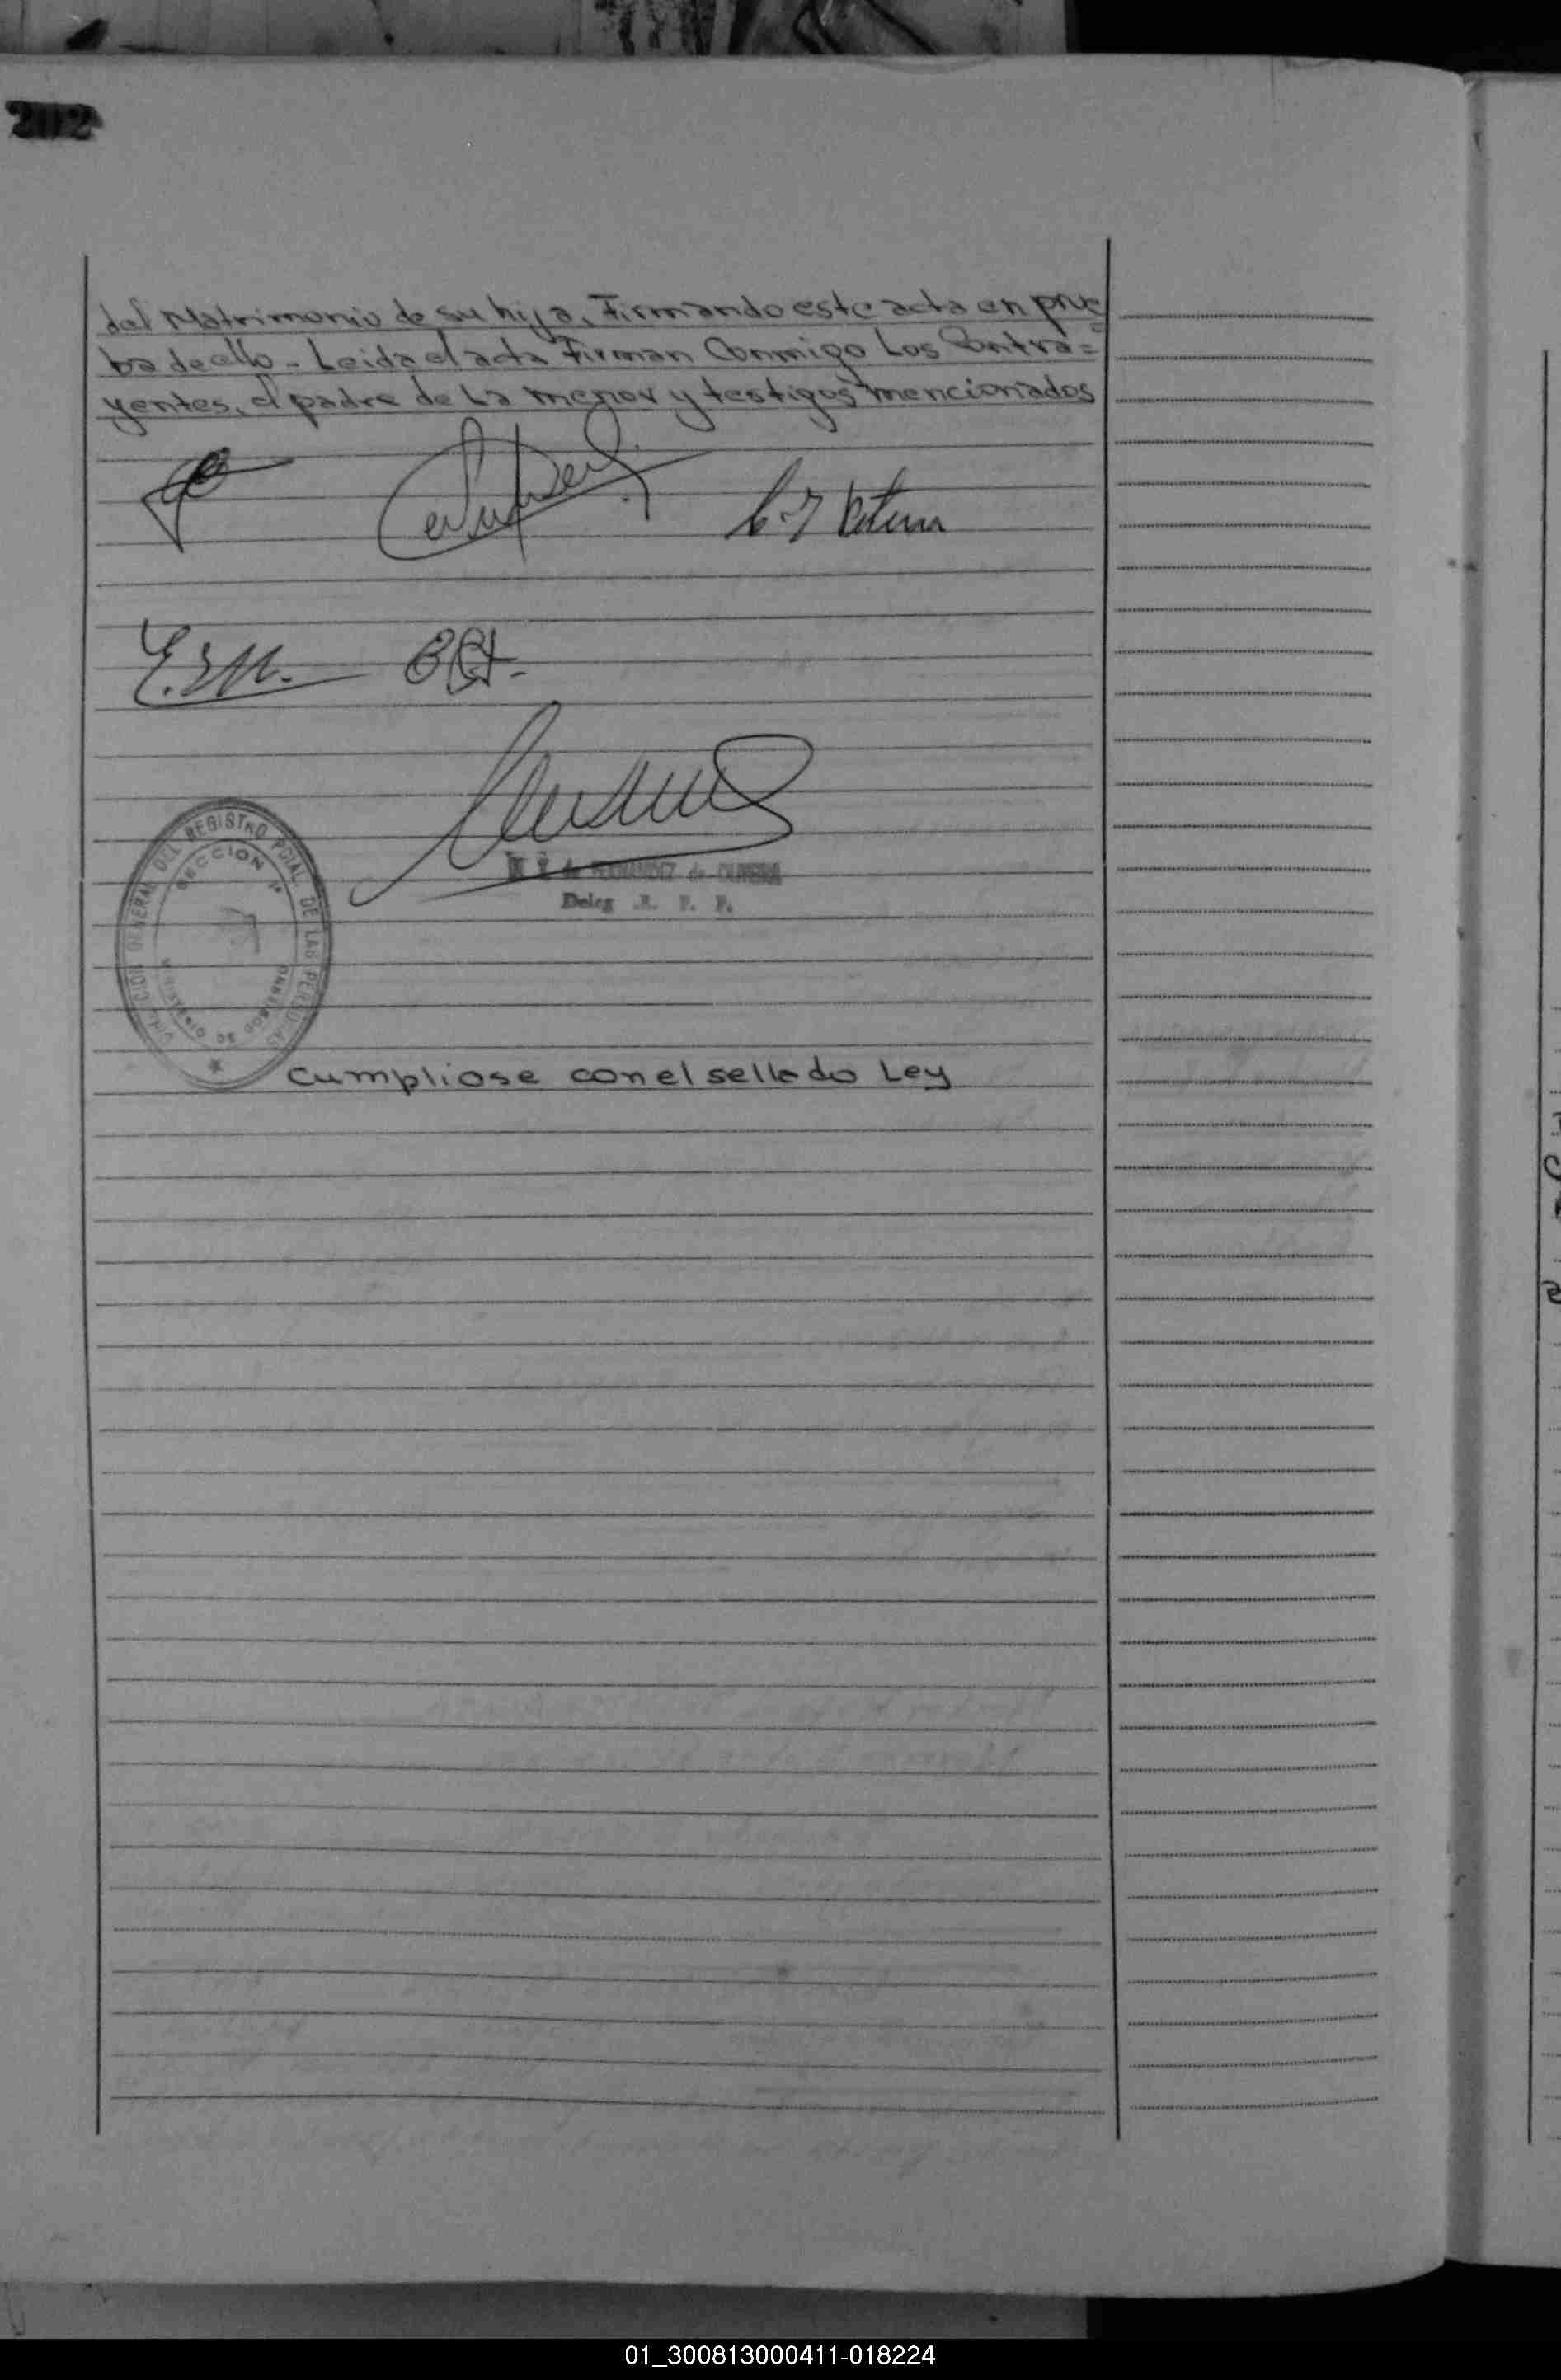 202
del Matrimonio de su hija, Firmando este acta en prue
ba de ello - Leida el acta Firman Conmigo Los Contra=
yentes, el padre de La menor y testigos mencionados
E.S.M.
FERNANDEZ de OLIVERA
Deleg .R. P. P.
DIRECCION GENERAL DEL REGISTRO PCIAL. DE LAS PERSONAS
SECCION 1ª
Cumpliose con el sellado Ley
01_300813000411-018224